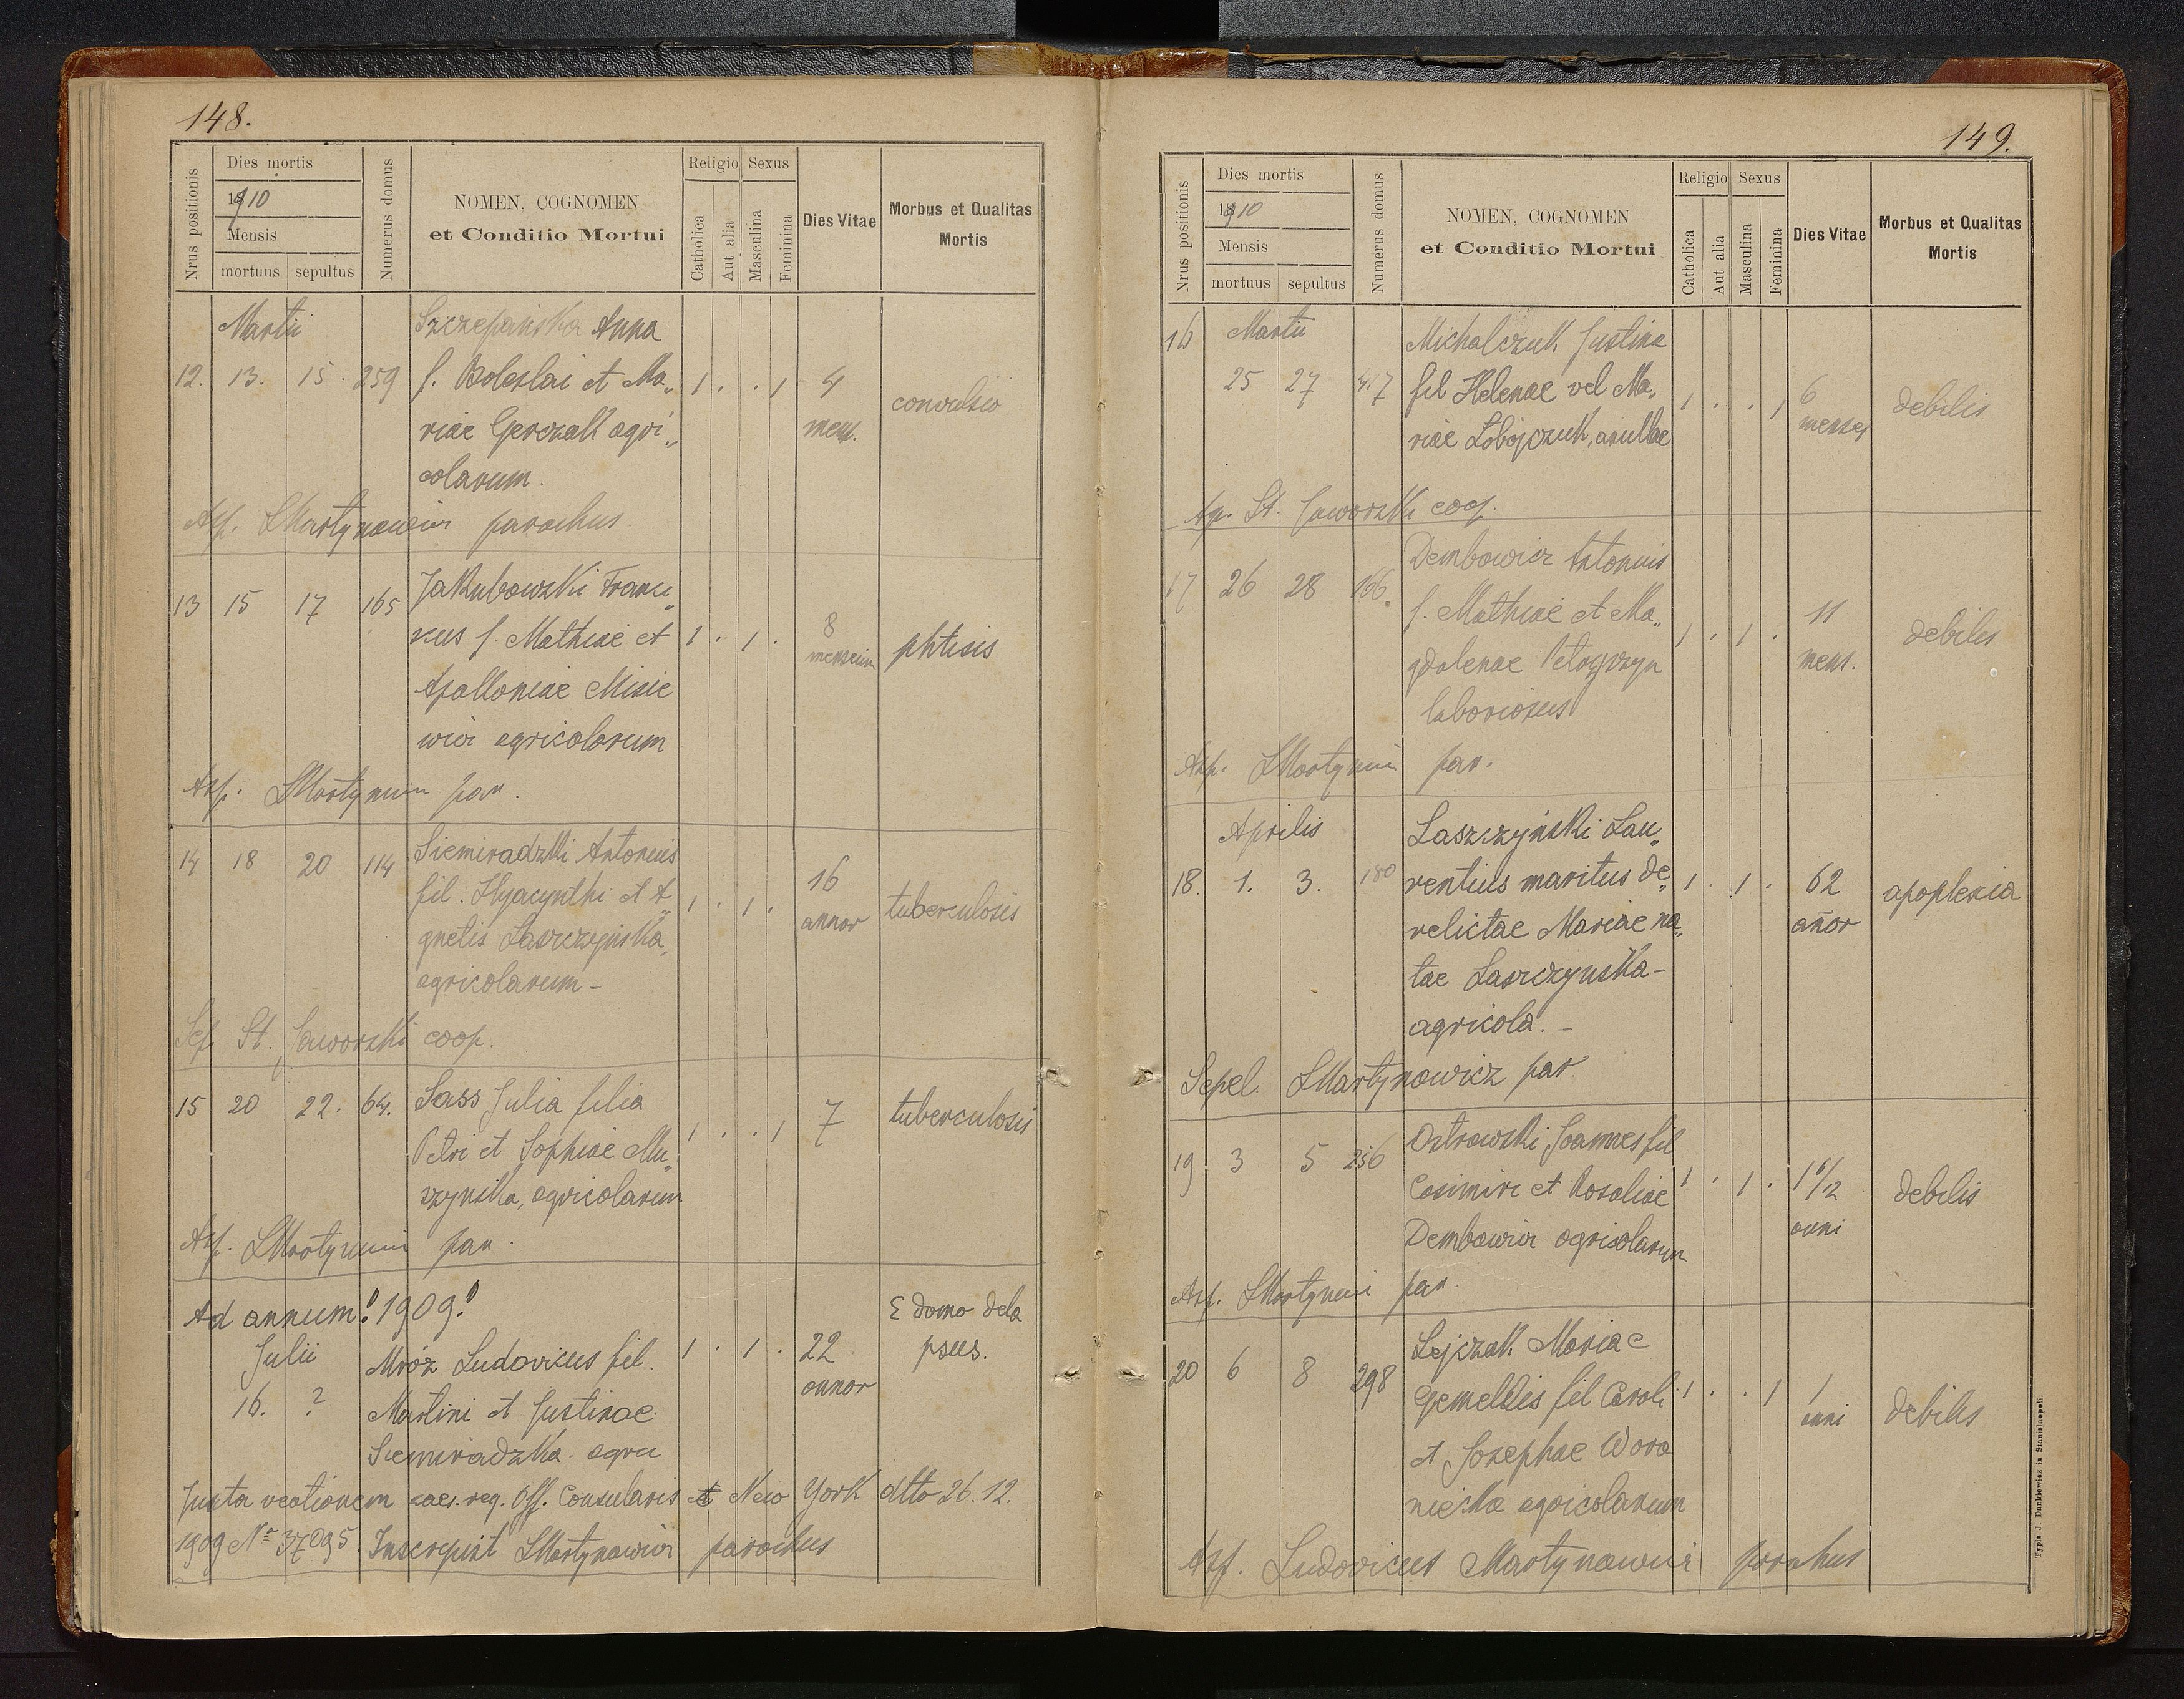 148.
Nrus positionis
Dies mortis
1910
Mensis
mortuus sepultus
Numerus domus
NOMEN, COGNOMEN
et Conditio Mortui
Religio Sexus
Catholica
Aut alia
Masculina
Feminina
Dies Vitae
Morbus et Qualitas
Mortis
Martii Szczepańska Anna
12. 13. 15. 259 f. Boleslai et Ma„ 1 . . 1 4 convulsio
riae Gerczak agri„ mens.
colarum.
Asp. LMartynowicz parochus
13 15 17 165 Jakubowski Franci„
scus f. Mathiae et 1 . 1 . 8 phtisis
Apolloniae Misie mensium
wicz agricolarum
Asp. LMartynowicz par.
14 18 20 114 Siemiradzki Antonius
fil. Hyacynthi et A„ 1 . 1 . 16 tuberculosis
gnetis Laszczyńska, annor
agricolarum –
Sep St. Jaworski coop.
15 20 22. 64. Sass Julia filia
Petri et Sophiae Mu„ 1 . . 1 7 tuberculosis
szyńska, agricolarum
Asp. LMartynowicz par.
Ad annum! 1909! E domo dela
Julii Mróz Ludovicus fil. 1 . 1 . 22 psus.
16. ? Martini et Justinae annor
Siemiradzka agri
Juxta caes. reg. Off. Consularis New York dtto 26.12.
1909 № 37095. Inscripsit LMartynowicz parochus
149.
Nrus positionis
Dies mortis
1910
Mensis
mortuus sepultus
Numerus domus
NOMEN, COGNOMEN
et Conditio Mortui
Religio Sexus
Catholica
Aut alia
Masculina
Feminina
Dies Vitae
Morbus et Qualitas
Mortis
16 Martii Michalczuk Justina
25 27 417 fil Helenae vel Ma„ 1 . . 1 6 debilis
riae Łobojczuk, menses
Ap. St. Jaworski coop.
17 26 28 166. Dembowicz Antonius
f. Mathiae et Ma„ 1 . 1 . 11 debilis
gdalenae mens.
laboriosus
Asp. LMartynowicz par.
Aprilis Laszczyński Lau„
18. 1. 3. 180 rentius maritus de„ 1 . 1 . 62 apoplexia
relictae Mariae na„ añor
tae Laszczyńska –
agricola. –
Sepel. LMartynowicz par
19 3 5 256 Ostrowski Joannes fil
Casimiri et Rosaliae 1 . 1 . 1 6/12 debilis
Dembowicz agricolarum anni
Asp. LMartynowicz par.
Lejczak Maria e
20 6 8 298 gemellis fil Caroli 1 . . 1 1 debilis
et Josephae Woro anni
niecka agricolarum
Asp. Ludovicus Martynowicz parochus
Typis J. Dankiewicz in Stanislaopoli.